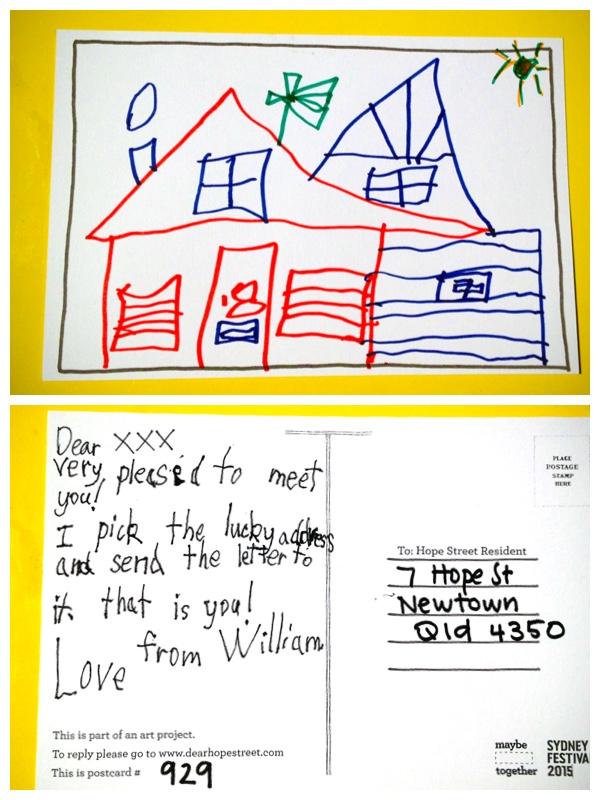 Dear XXX
very pleased to meet
you!
I pick the lucky address
and send the letter to
it. that is you!
Love from William
This is part of an art project.
To reply please go to www.dearhopestreet.com
This is postcard # 929
PLACE
POSTAGE
STAMP
HERE
To: Hope Street Resident
7 Hope St
Newtown
Qld 4350
maybe
together
SYDNEY
FESTIVA
2015